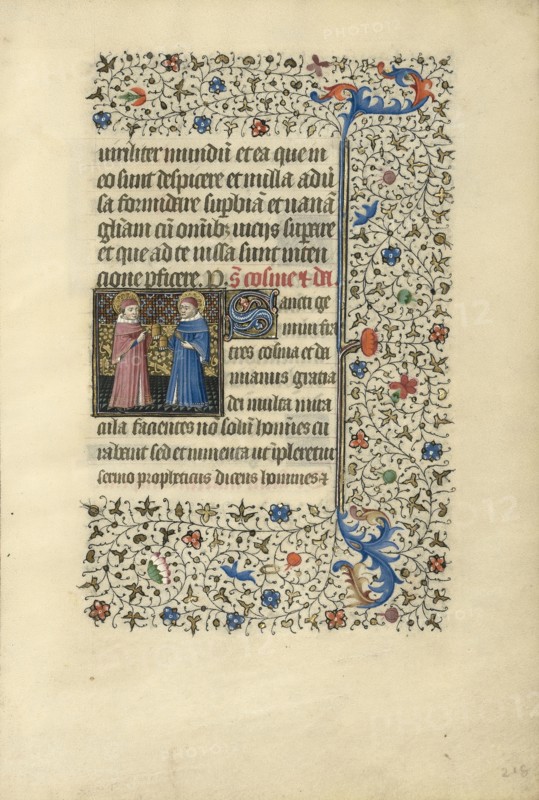 uiriliter mundū et ea que in
eo sunt despicere et nulla aduer
sa formidare supbiā et uanā
gliam cū omībꝫ uicijs supare
et que ad te iussa sunt inten
cione pficere. P. S̄ cosme ⁊ da.
Sancti ge
mini fra
tres cosma et da
mianus gratia
dei multa mira
cula facientes nō solū homīes cu
rabant sed et iumenta ut īpleretur
sermo propheticus dicens homines ⁊
218